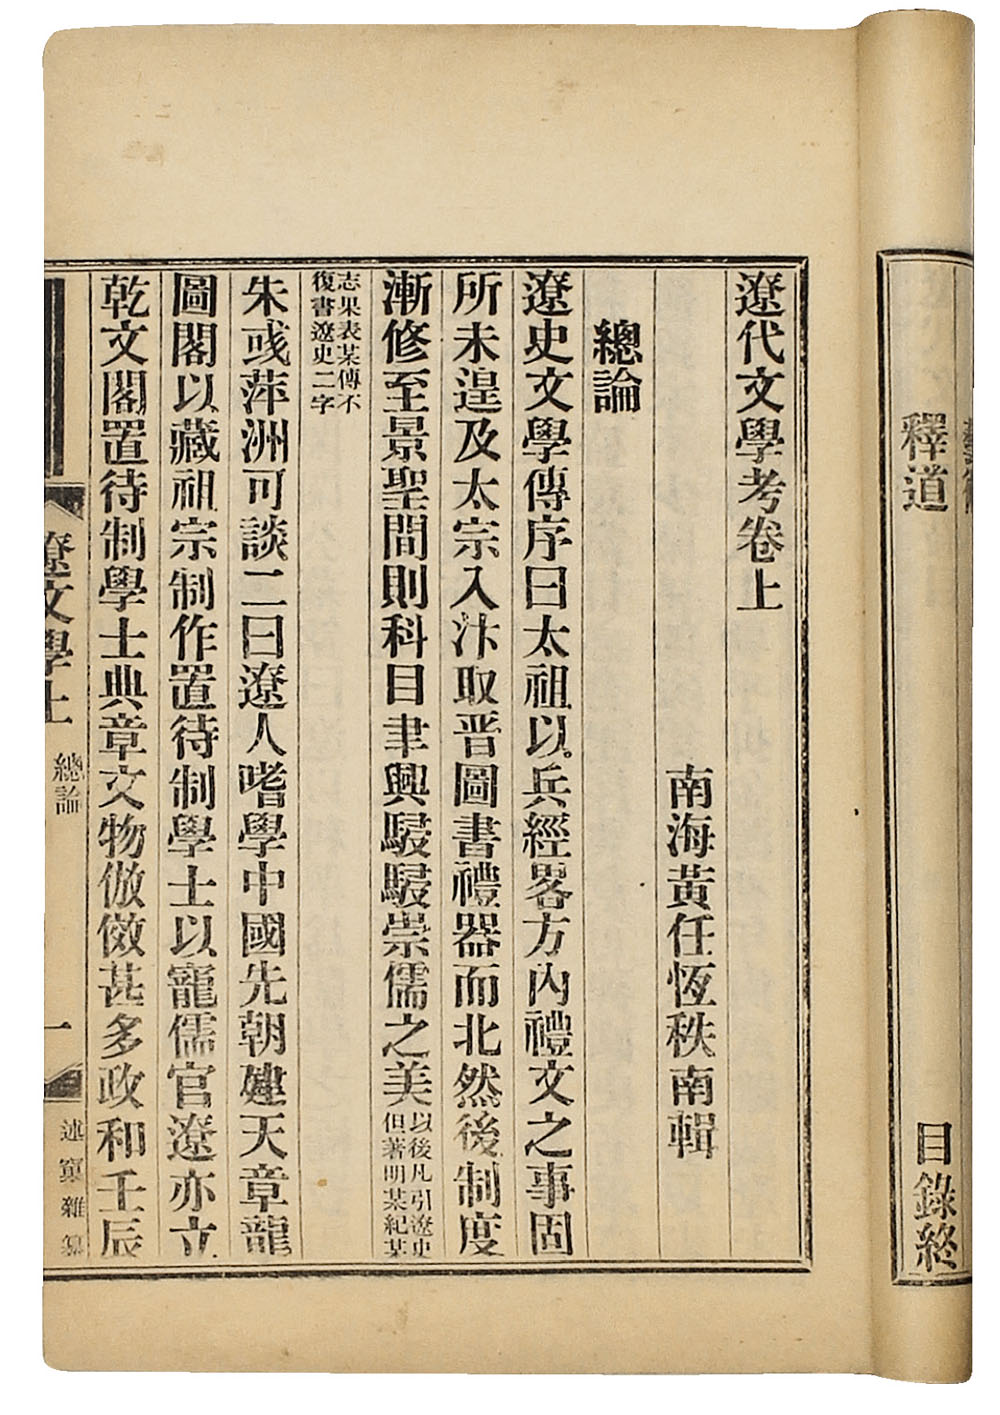 釋道
目錄終
遼代文學考卷上
南海黃任恆秩南輯
總論
遼史文學傳序曰太祖以兵經畧方內禮文之事固
所未遑及太宗入汴取晋圖書禮器而北然後制度
漸修至景聖間則科目聿興駸駸崇儒之美以後凡引遼史但著明某紀某
志果表某傳不復書遼史二字
朱彧萍洲可談二曰遼人嗜學中國先朝建天章龍
圖閣以藏祖宗制作置待制學士以寵儒官遼亦立
乾文閣置待制學士典章文物倣傚甚多政和壬辰
遼文學上 總論 一 述窠雜纂